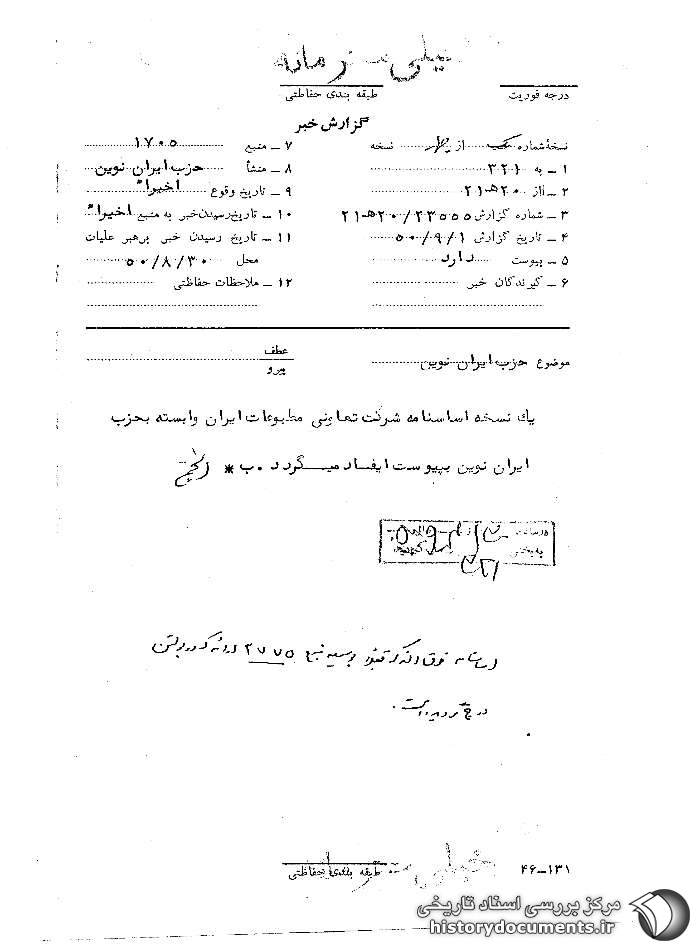 خیلی محرمانه
درجه فوریت
طبقه بندی حفاظتی
گزارش خبر
نسخهٔ شماره یک از چهار نسخه
۱ ـ به ۳۲۱
۲ ـ از ۲۰ هـ ۲۱
۳ ـ شماره گزارش ۲۳۵۵۵/۲۰ هـ ۲۱
۴ ـ تاریخ گزارش ۵۰/۹/۱
۵ ـ پیوست دارد
۶ ـ گیرندگان خبر
۷ ـ منبع ۱۷۰۵
۸ ـ منشأ حزب ایران نوین
۹ ـ تاریخ وقوع اخیراً
۱۰ ـ تاریخ رسیدن خبر به منبع اخیراً
۱۱ ـ تاریخ رسیدن خبر برهبر عملیات
محل ۵۰/۸/۳۰
۱۲ ـ ملاحظات حفاظتی
موضوع حزب ایران نوین
عطف
پیرو
یك نسخه اساسنامه شرکت تعاونی مطبوعات ایران وابسته بحزب
ایران نوین بپیوست ایفاد میگردد .ب *
اساسنامه فوق الذکر قبلا بوسیله منبع ۲۷۷۵ ارائه که در بولتن
درج گردیده است .
طبقه بندی حفاظتی
۴۶-۱۳۱
مرکز بررسی اسناد تاریخی
historydocuments.ir